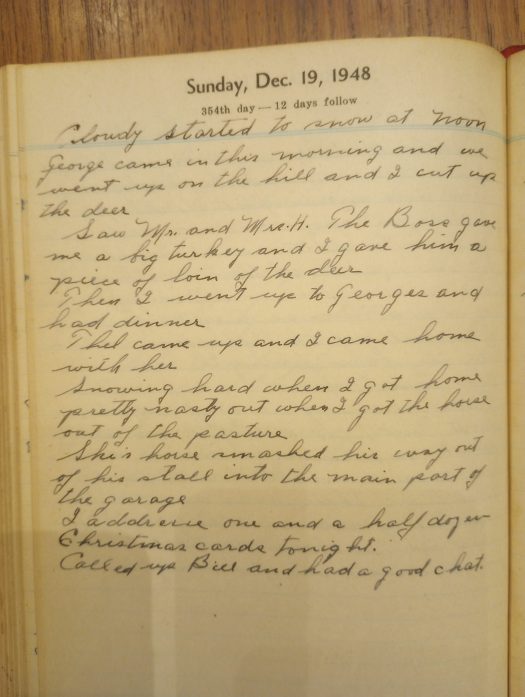 Sunday, Dec. 19, 1948
354th day — 12 days follow
Cloudy started to snow at noon
George came in this morning and we
went up on the hill and I cut up
the deer
Saw Mr. and Mrs. H. The Boss gave
me a big turkey and I gave him a
piece of loin of the deer
Then I went up to Georges and
had dinner
Thel came up and I came home
with her
Snowing hard when I got home
pretty nasty out when I got the horse
out of the pasture
Ski's horse smashed his way out
of his stall into the main part of
the garage
I addresse one and a half dozen
Christmas cards tonight.
Called up Bill and had a good chat.